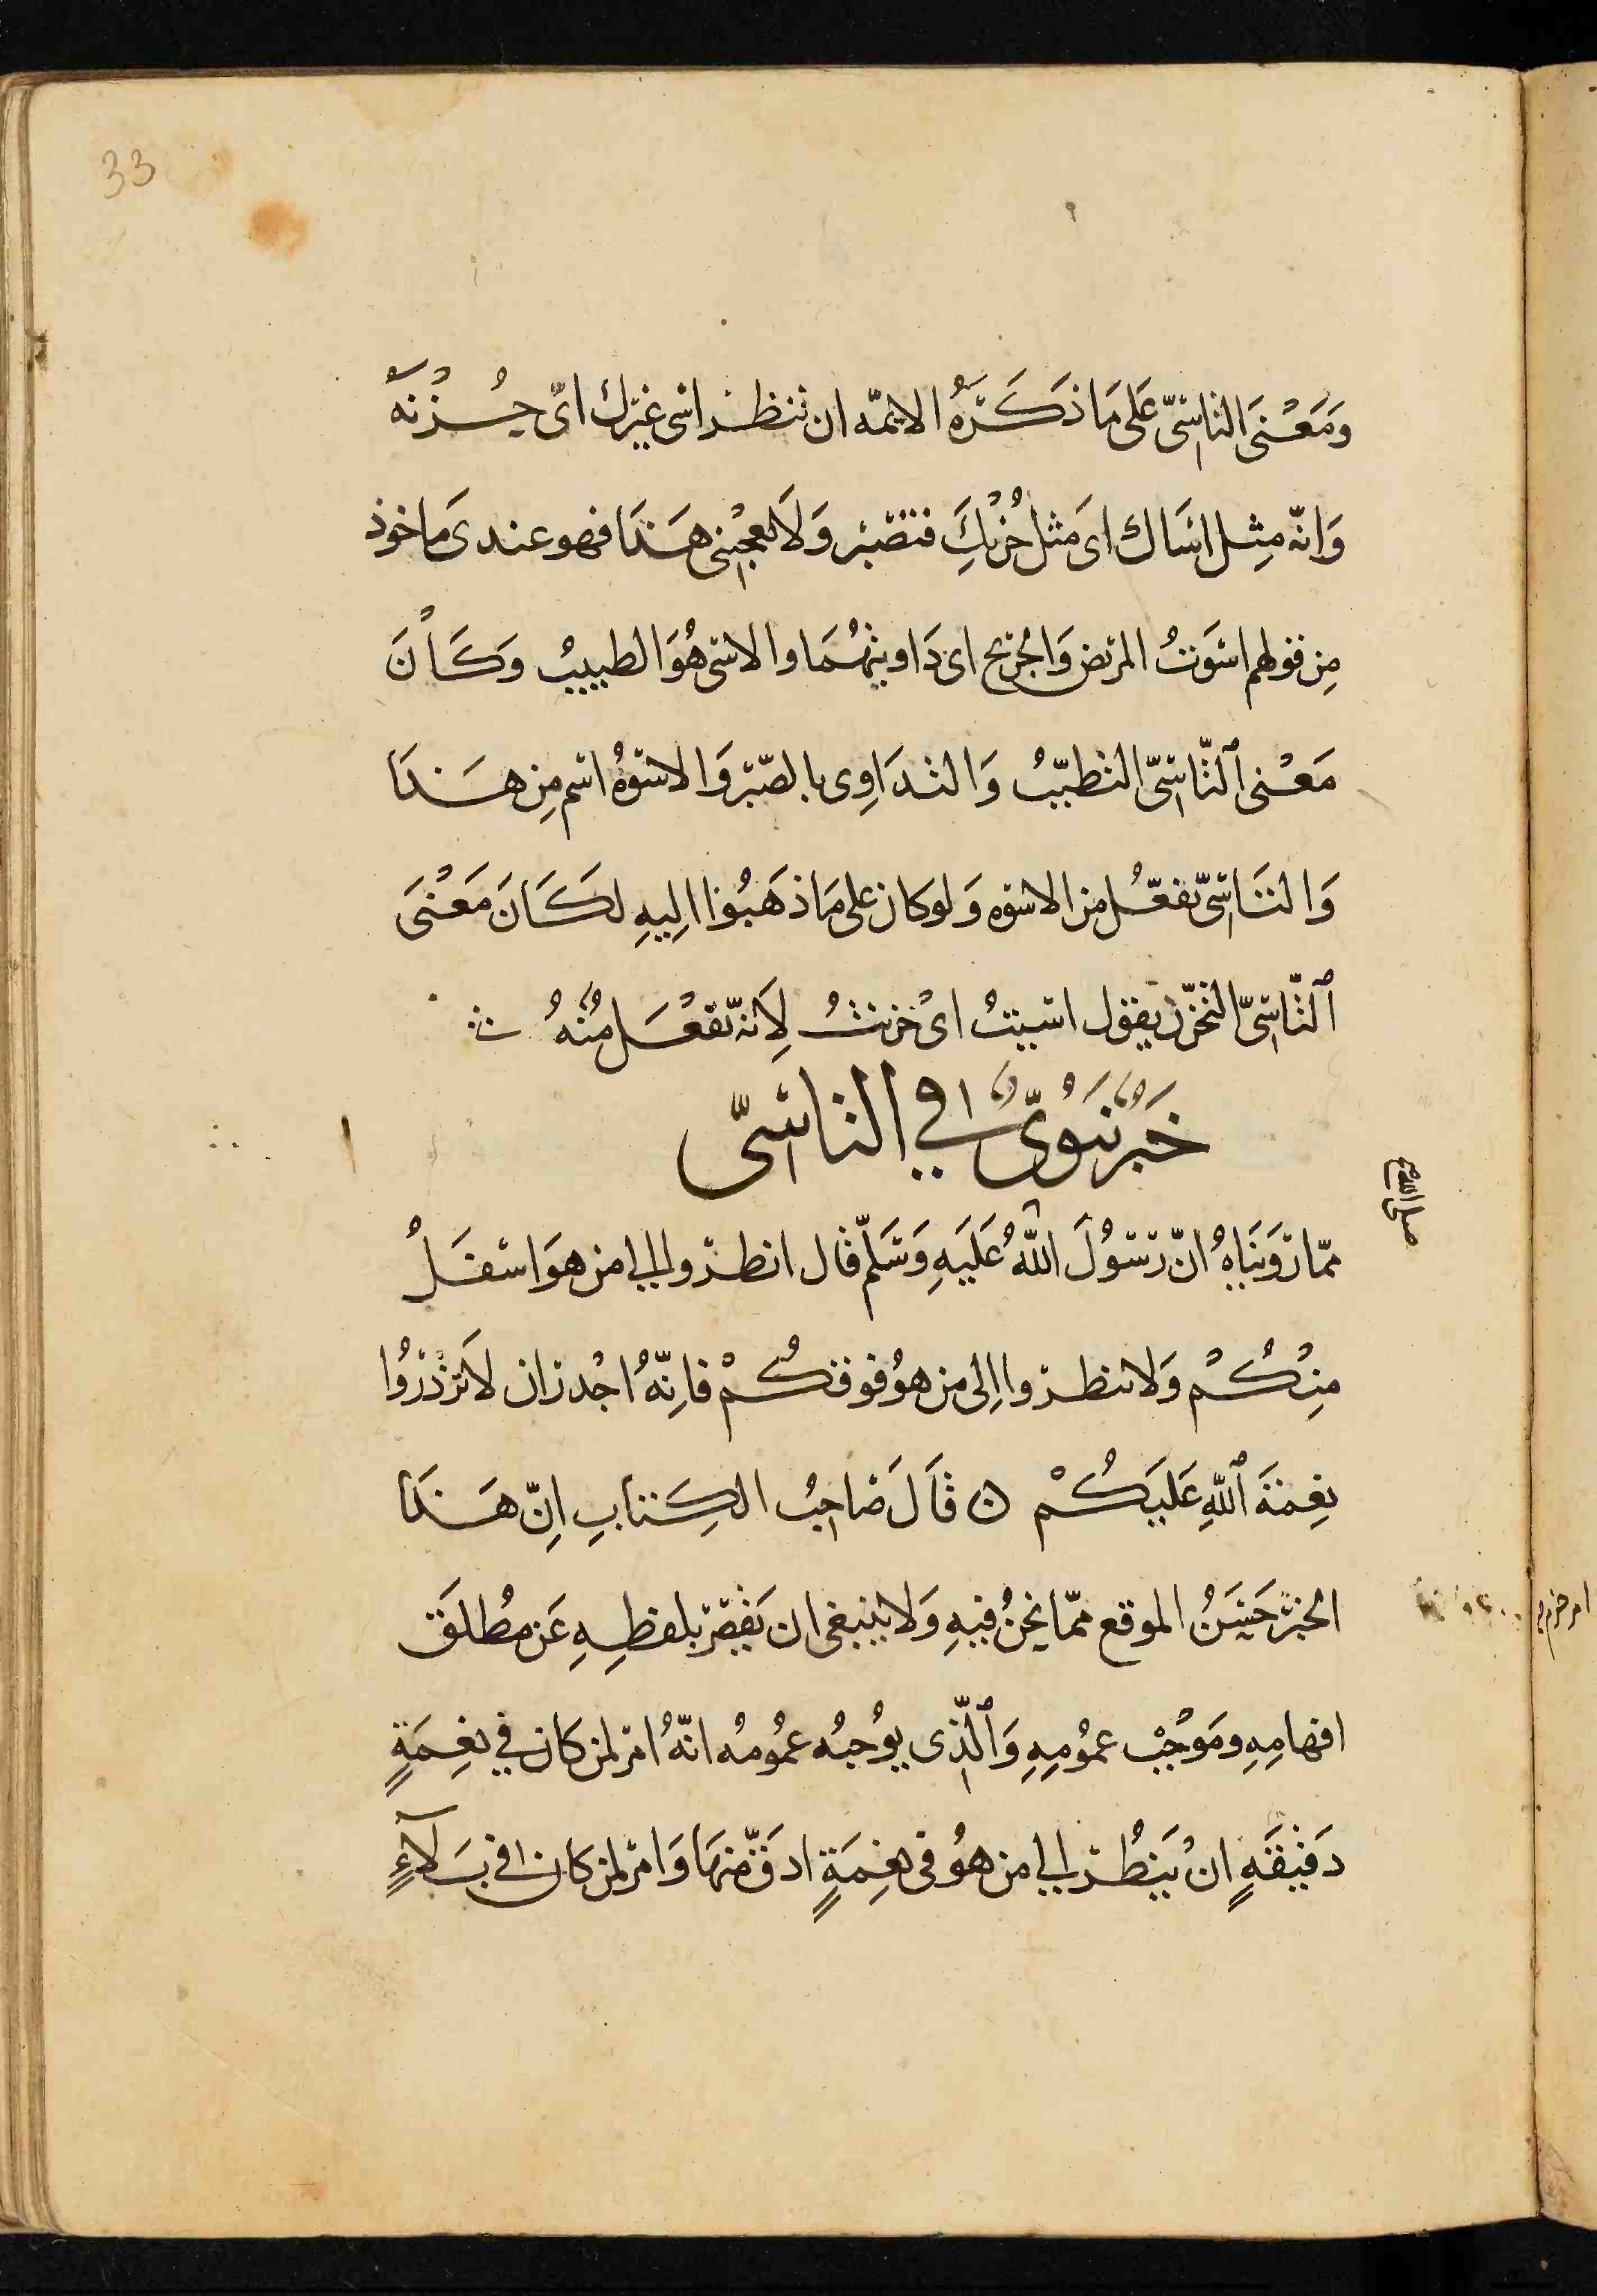 33
وَمَعْنَى التاسّى عَلى مَا ذكَرَهُ الايمّه ان تنظر اسى غيرك اىّ حُزْنه
وَانّه مِثل اسَاك اىَ مثل حُزْنِكَ فتصبر وَلَا يعجبْنى هَذا فهو عندى ماخوذ
مِن قولهم اسَوتُ المريض وَالجريح اى دَاويتهُمَا والاسى هُوَ الطبيبُ وكَانَ
مَعْنى ٱلتّاسّى التطبّبُ وَالتدَاوِى بالصّبر وَالاسوةُ اسم مِن هَذا
وَالتاسّى تفعّل من الاسوه وَلو كان على مَا ذهَبُوا اِليهِ لكَانَ مَعْنىَ
ٱلتّاسّى التحزّن يقول اسيتُ اىْ حزنتُ لِانّه تفعّل مِنْهُ
خَبَرٌ نبَوىٌّ في التاسّى
ممّا رَوَينَاهُ انّ رَسُولَ اللّهُ عَلَيهِ وَسَلّم قال انظرُوا الى من هوَ اسفَلُ
صلى الله
مِنْكُمْ وَلا تنظرُوا اِلى من هوُ فوقكُمْ فاِنّهُ اجْدر ان لَا تزْدَرُوا
نِعمَةَ ٱللّهِ عَليكُمْ ن قَالَ صَاحِبُ الكِتابِ اِنّ هَذا
الخبرَ حَسَنُ الموقع ممّا نحنُ فيهِ وَلا ينبغى ان يَقصّر بلفظِهِ عَن مطُلَق
افهامِهِ ومَوُجْبْ عمُومِهِ وَٱلّذى يوُجبُه عمُومُه انّهُ امر لمن كان في نِعمَةٍ
دَقيقَةٍ انْ يَنظُر الى من هوُ فى نِعمَةٍ ادقّ منهَا وَامر لمن كان في بَلآءٍ